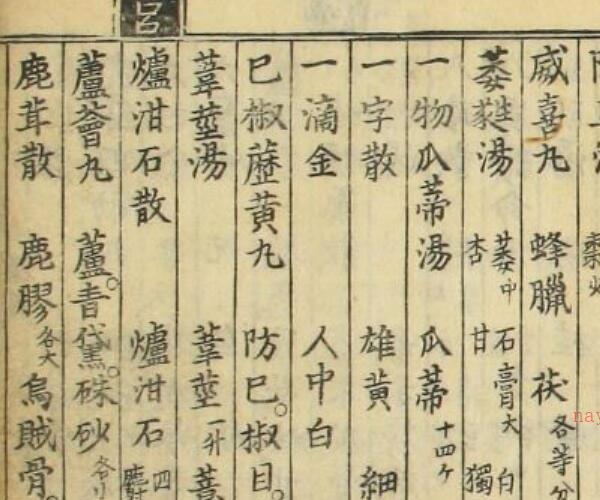 呂
威喜丸 蜂臘 茯各等分
萎蕤湯 萎中 石膏大 白 杏 甘 獨
一物瓜蒂湯 瓜蒂十四ケ
一字散 雄黄 細
一滴金 人中白
巳椒藶黄丸 防巳。椒目。
葦莖湯 葦莖一升 薏
爐泔石散 爐泔石四
蘆薈丸 蘆。青黛。硃砂各
鹿茸散 鹿膠各大 烏賊骨。
nay